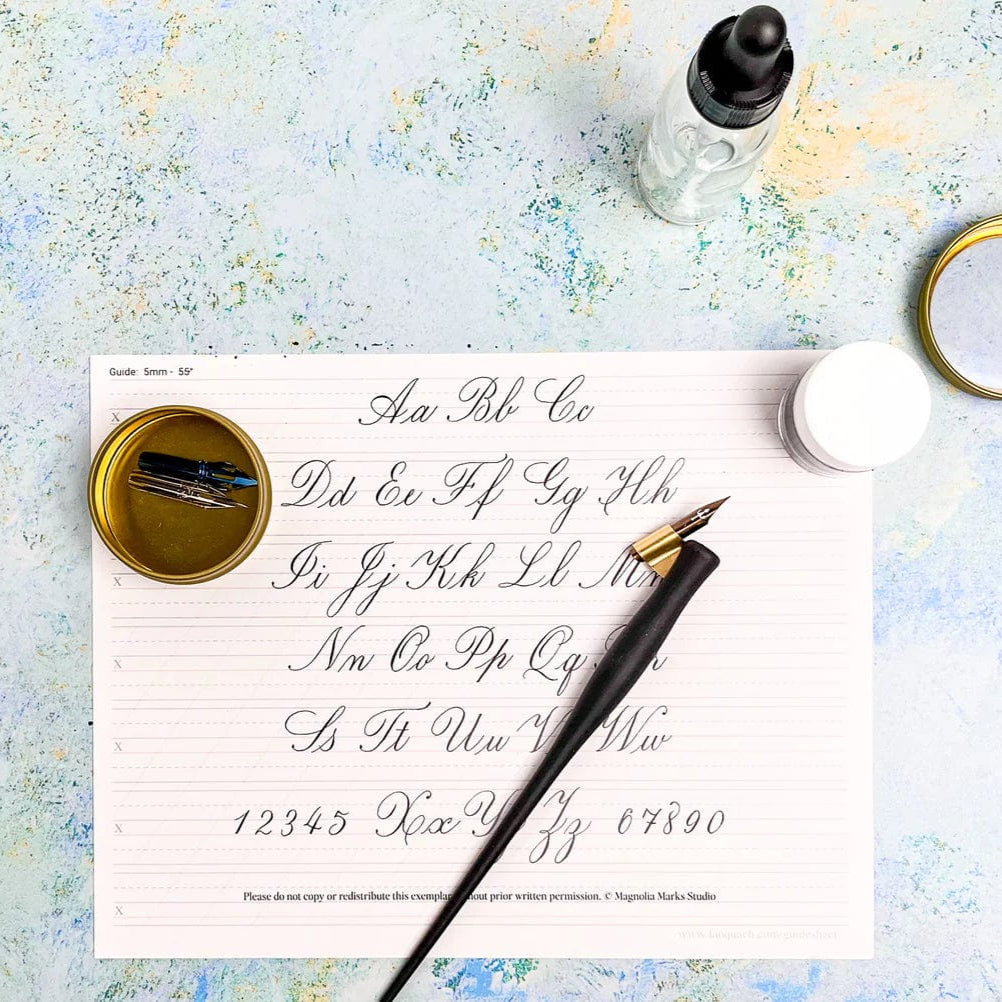 Guide: 5mm - 55°
x
Aa Bb Cc
Dd Ee Ff Gg Hh
x
Ii Jj Kk Ll
x
Nn Oo Pp Qq
x
Ss Tt Uu Ww
x
12345 Xx Zz 67890
Please do not copy or redistribute this without prior written permission. © Magnolia Marks Studio
x